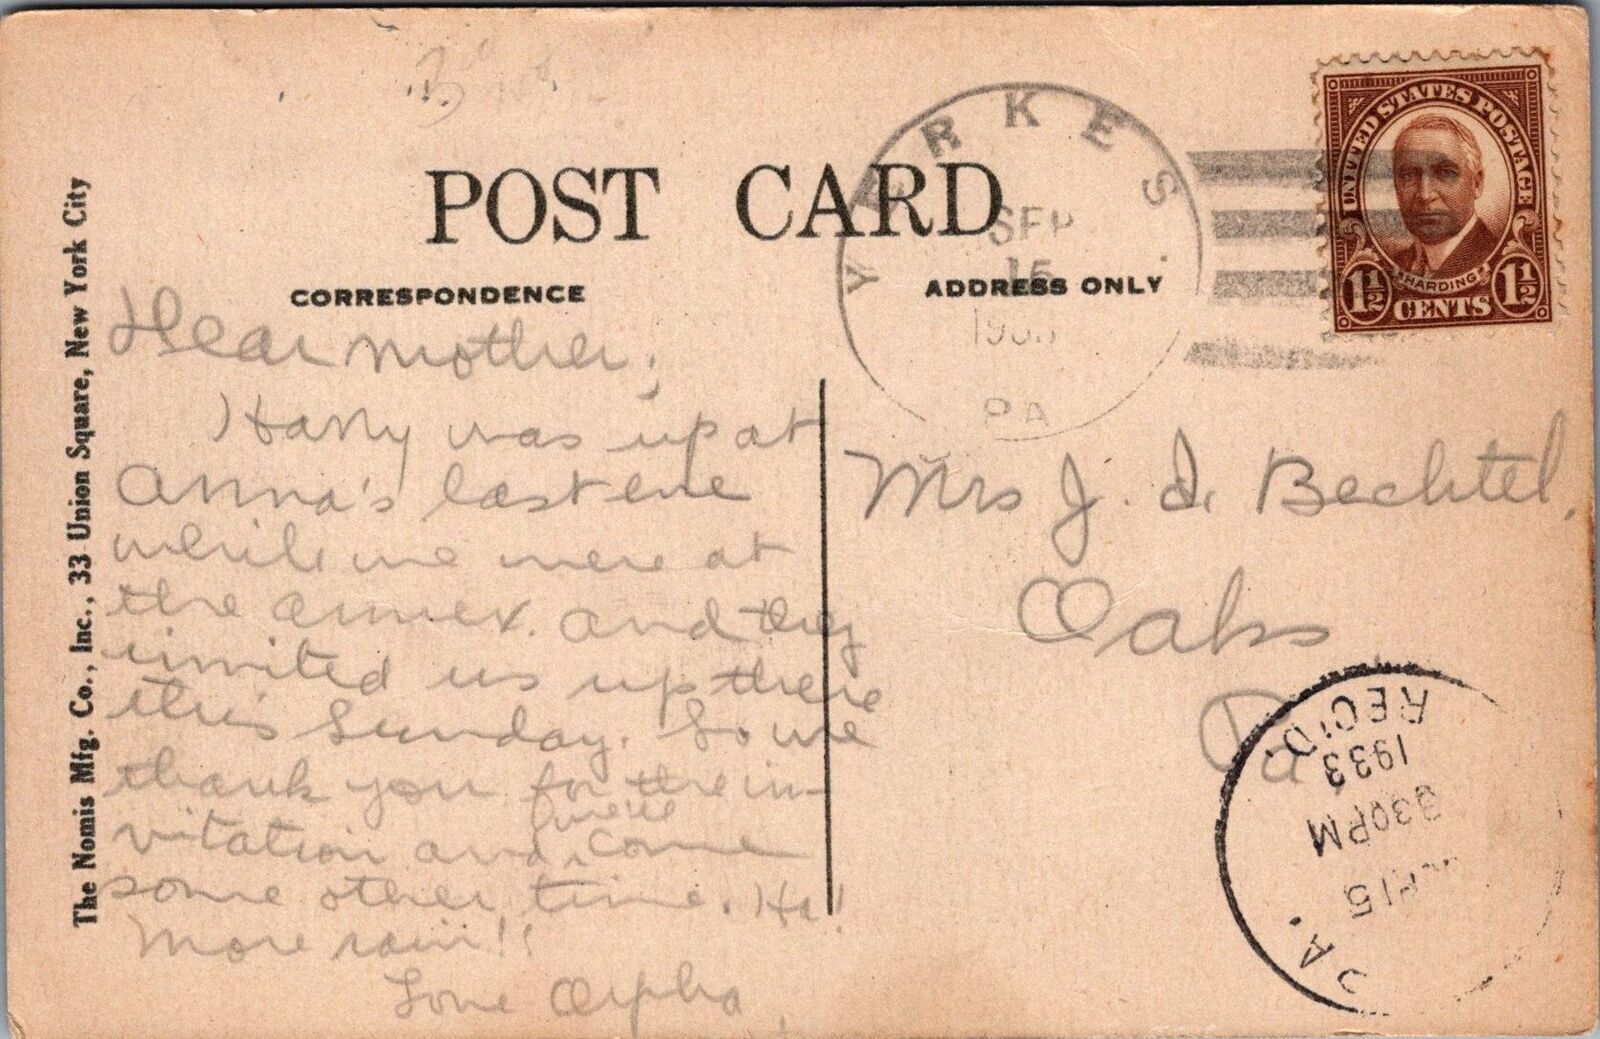 POST CARD
CORRESPONDENCE
ADDRESS ONLY
The Nomis Mfg. Co., Inc., 33 Union Square, New York City
YERKES
SEP
15
PA
UNITED STATES POSTAGE
HARDING
1½ CENTS 1½
Dear Mother;
Harry was up at
Anna's last eve
while we were at
the annex. and they
invited us up there
this Sunday. So we
thank you for the in-
vitation and we'll come
some other time. Ha!
More rain!!
Love Orpha
Mrs J. I. Bechtel,
Oaks
Pa.
REC'D.
1933
930PM
15
PA.